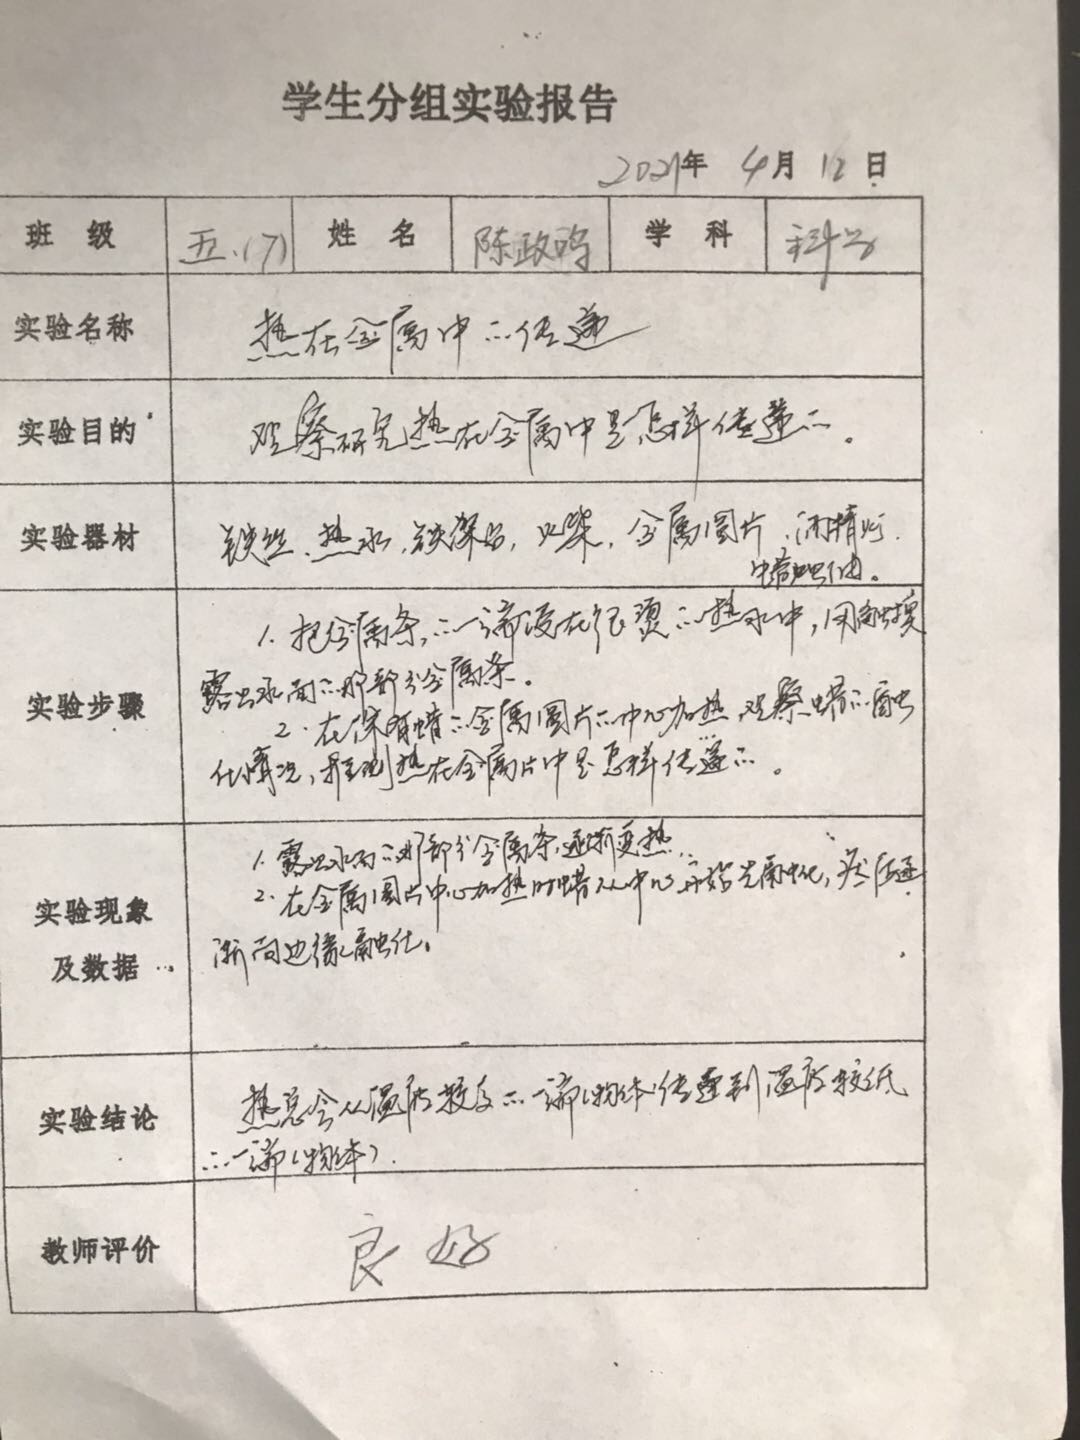 学生分组实验报告
2021年 4月12日
班 级 五.(7) 姓 名 陈政鸣 学 科 科学
实验名称 热在金属中的传递
实验目的 观察研究热在金属中是怎样传递的。
实验器材 铁丝、热水、铁架台,火柴,金属圆片、酒精灯、
蜡
实验步骤 1. 把金属条,的一端浸在很烫的热水中,用触摸
露出水面的那部分金属条。
2. 在 有蜡的金属圆片的中心加热,观察蜡的融
化情况,推测热在金属片中是怎样传递的。
实验现象及数据 1. 露出水面的那部分金属条,逐渐变热.
2. 在金属圆片中心加热时蜡从中心开始先融化,然后逐
渐向边缘融化。
实验结论 热总会从温度较高的一端(物体)传递到温度较低
的一端(物体).
教师评价 良好